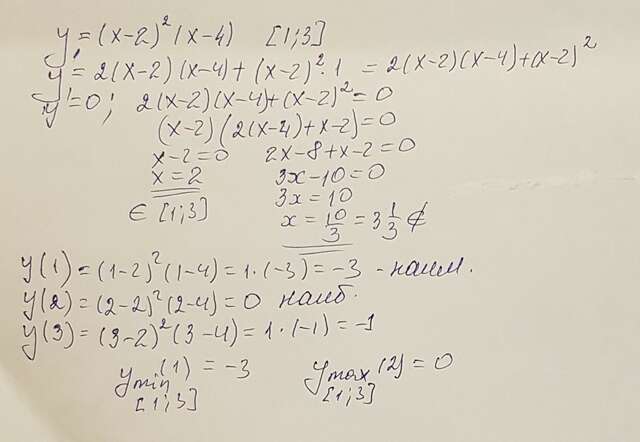 y = (x-2)²(x-4) [1;3]
y' = 2(x-2)(x-4)+(x-2)²·1 = 2(x-2)(x-4)+(x-2)²
y'=0; 2(x-2)(x-4)+(x-2)²=0
(x-2)(2(x-4)+x-2)=0
x-2=0 2x-8+x-2=0
x=2 3x-10=0
∈ [1;3] 3x=10
x=10/3=3 1/3 ∉
y(1)=(1-2)²(1-4)=1·(-3)=-3 - наим.
y(2)=(2-2)²(2-4)=0 наиб.
y(3)=(3-2)²(3-4)=1·(-1)=-1
y min (1) = -3 y max (2) = 0
[1;3] [1;3]